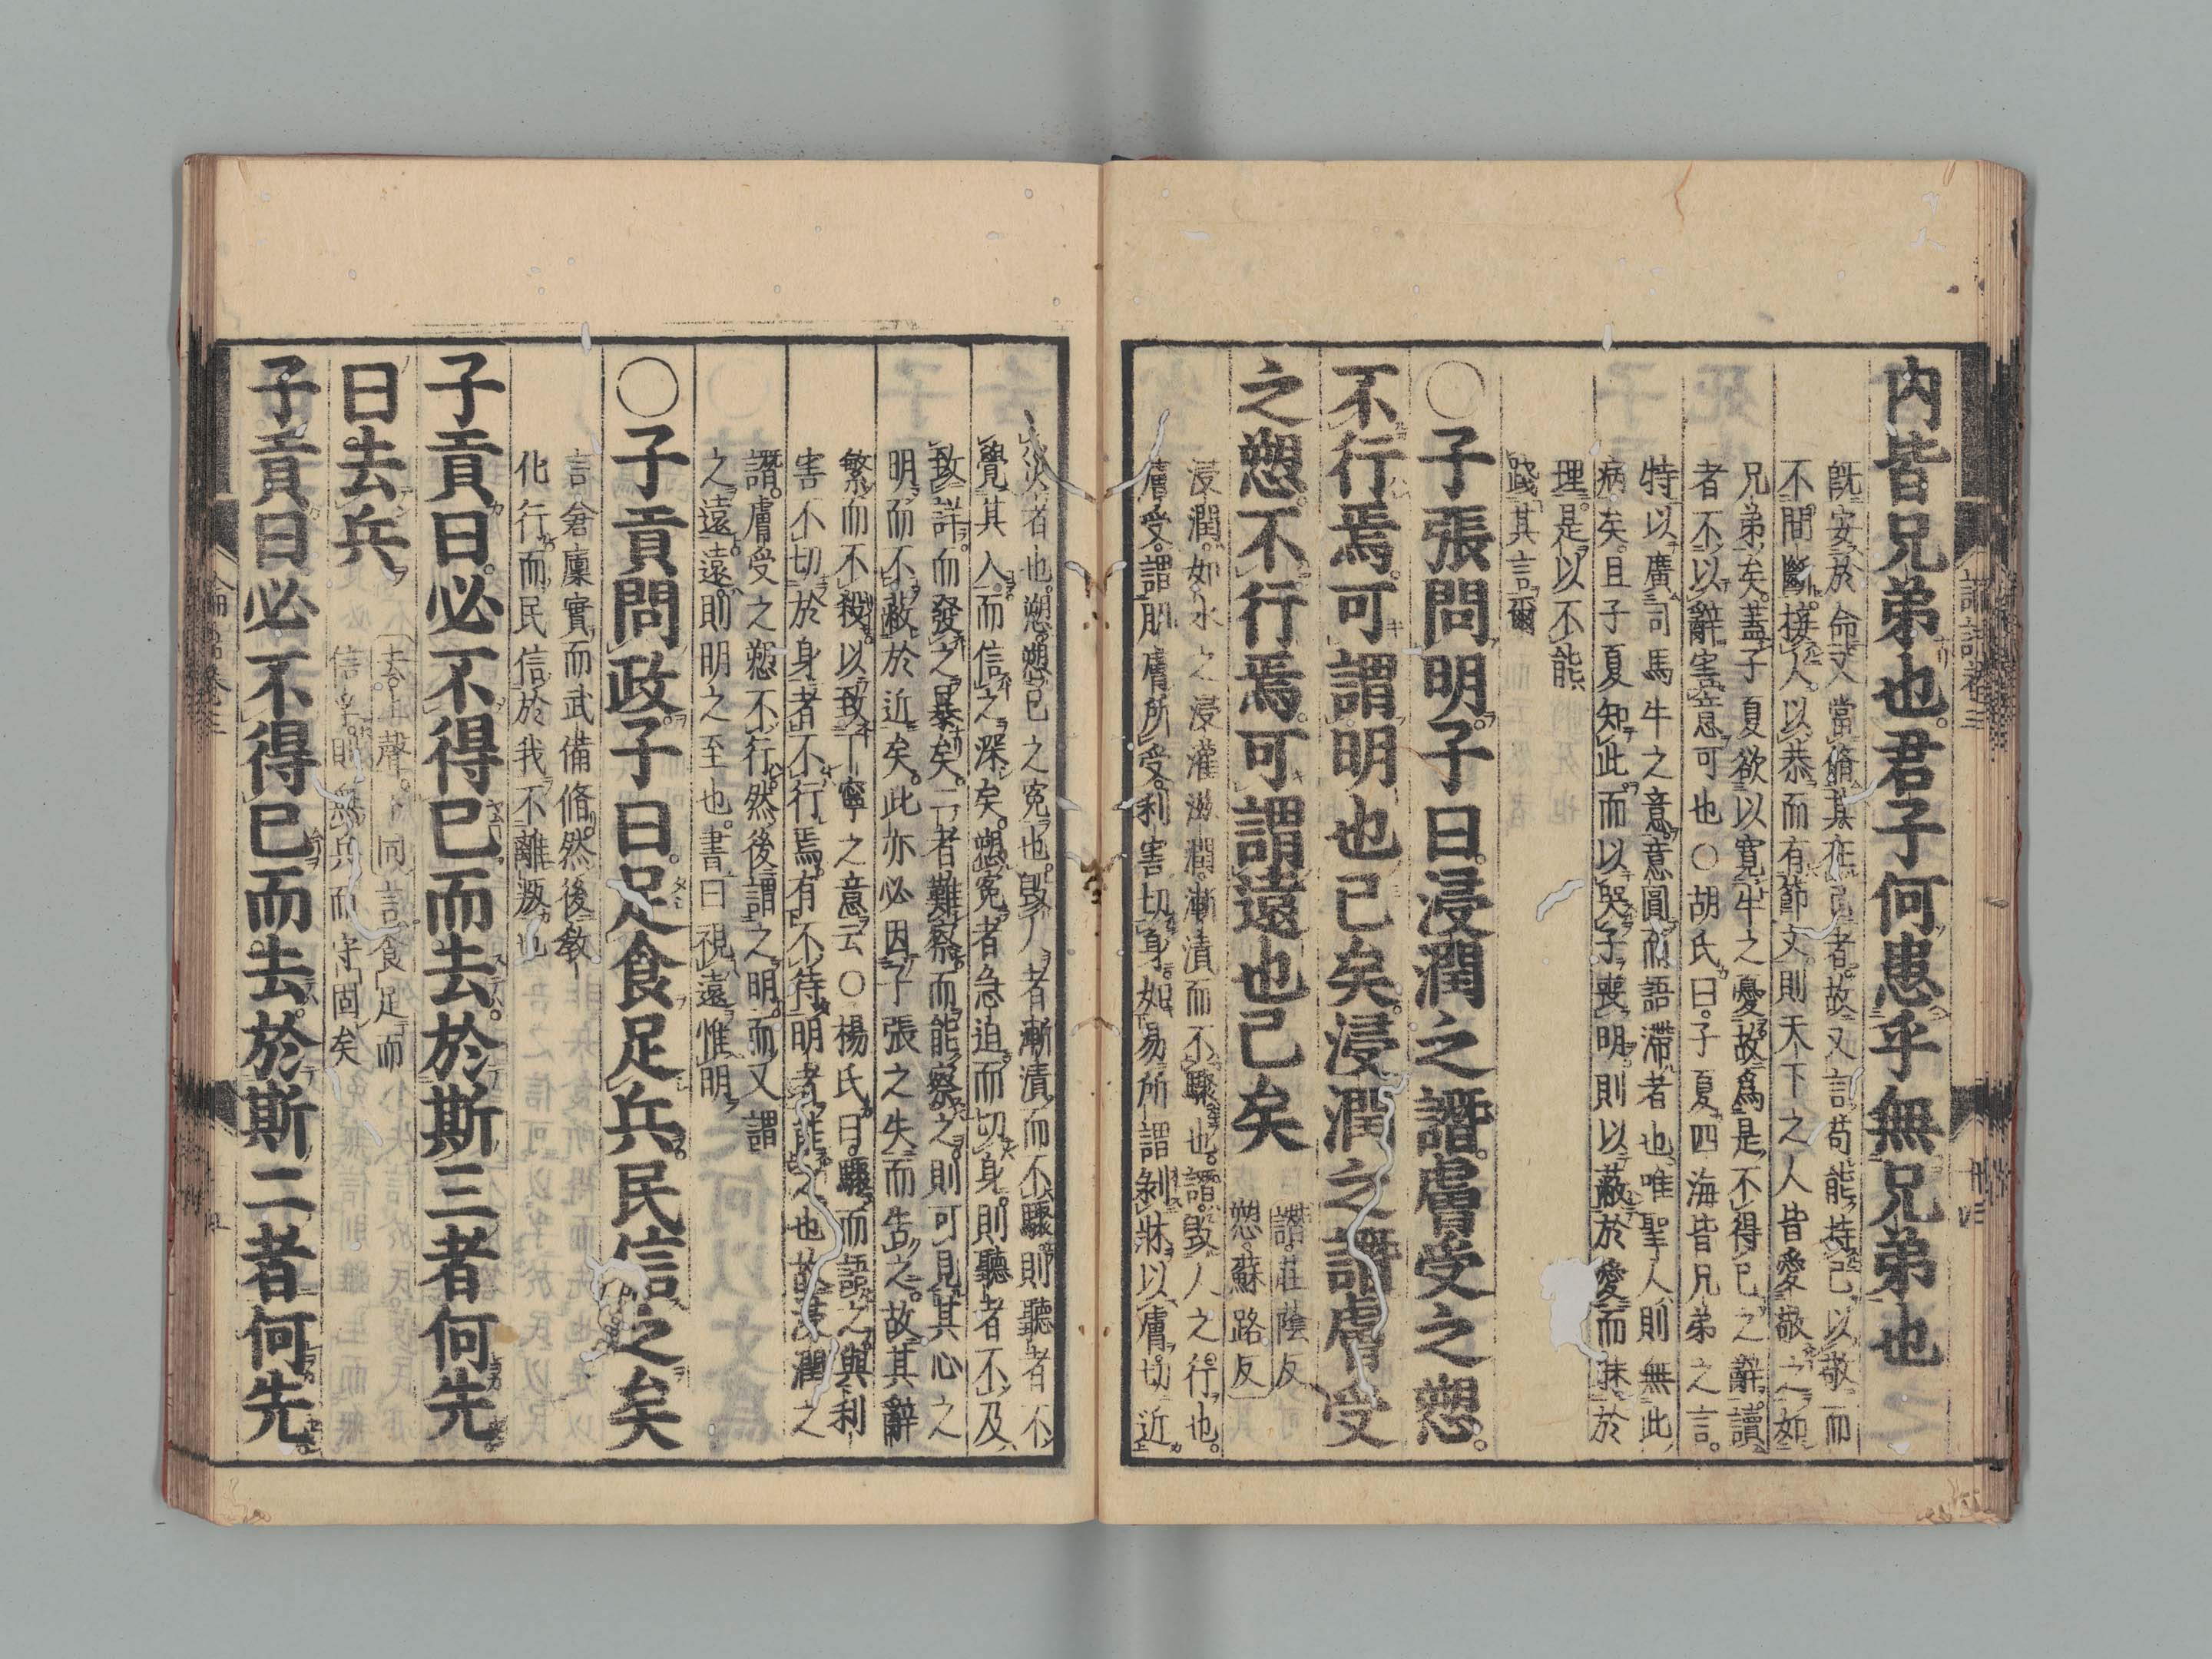 內皆兄弟也。君子何患乎無兄弟也
既安於命又當脩其在己者。故又言苟能持己以敬而
不間斷。接人以恭而有節文則天下之人皆愛敬之如
兄弟矣。蓋子夏欲以寛牛之憂。故爲是不得已之辭。讀
者不以辭害意可也○胡氏曰。子夏四海皆兄弟之言。
特以廣司馬牛之意。意圓而語滯者也。唯聖人則無此
病矣。且子夏知此。而以哭子喪明。則以蔽於愛而昧於
理。是以不能
踐其言爾
○子張問明。子曰。浸潤之譖。膚受之愬。
不行焉。可謂明也已矣。浸潤之譖膚受
之愬。不行焉。可謂遠也已矣
譖。莊蔭反
愬。蘇路反
浸潤。如水之浸灌滋潤。漸漬而不驟也。譖。毀人之行也。
膚受。謂肌膚所受。利害切身。如易所謂剝牀以膚。切近
災者也。愬。愬己之寃也。毀人者漸漬而不驟。則聽者不
覺其入。而信之深矣。愬寃者急迫而切身。則聽者不及
致詳。而發之暴矣。二者難察。而能察之。則可見其心之
明。而不蔽於近矣。此亦必因子張之失而告之。故其辭
繁而不殺。以致丁寧之意云○楊氏曰。驟而語之與利
害不切於身者不行焉。有不待明者能之也。故浸潤之
譖。膚受之愬不行。然後謂之明。而又謂
之遠。遠。則明之至也。書曰視遠惟明
○子貢問政。子曰。足食足兵。民信之矣
言倉廩實而武備脩。然後教
化行。而民信於我。不離叛也
子貢曰。必不得已而去。於斯三者何先。
曰去兵
去。上聲。下同言食足而
信孚。則無兵而守固矣
子貢曰必不得已而去。於斯二者何先。